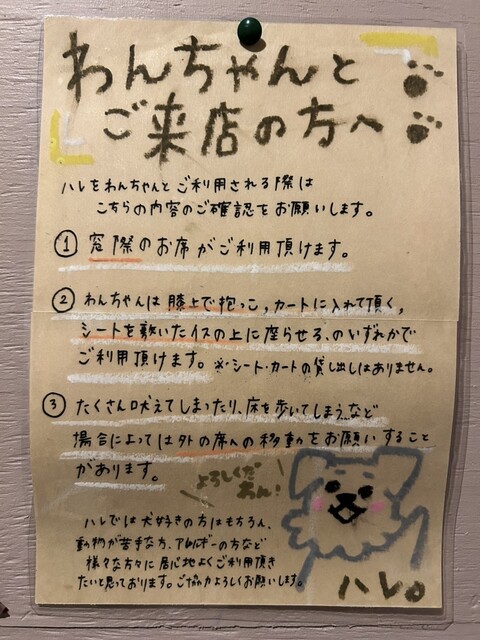 わんちゃんと
ご来店の方へ
ハレをわんちゃんとご利用される際は
こちらの内容のご確認をお願いします。
① 窓際のお席がご利用頂けます。
② わんちゃんは膝上で抱っこ,カートに入れて頂く,
シートを敷いたイスの上に座らせる、のいずれかで
ご利用頂けます。※シート・カートの貸し出しはありません。
③ たくさん吠えてしまったり、床を歩いてしまう、など
場合によっては外の席への移動をお願いすること
があります。
よろしくだ
わん!
ハレでは犬好きの方はもちろん、
動物が苦手な方、アレルギーの方など
様々な方々に居心地よくご利用頂き
たいと思っております。ご協力よろしくお願いします。
ハレ。